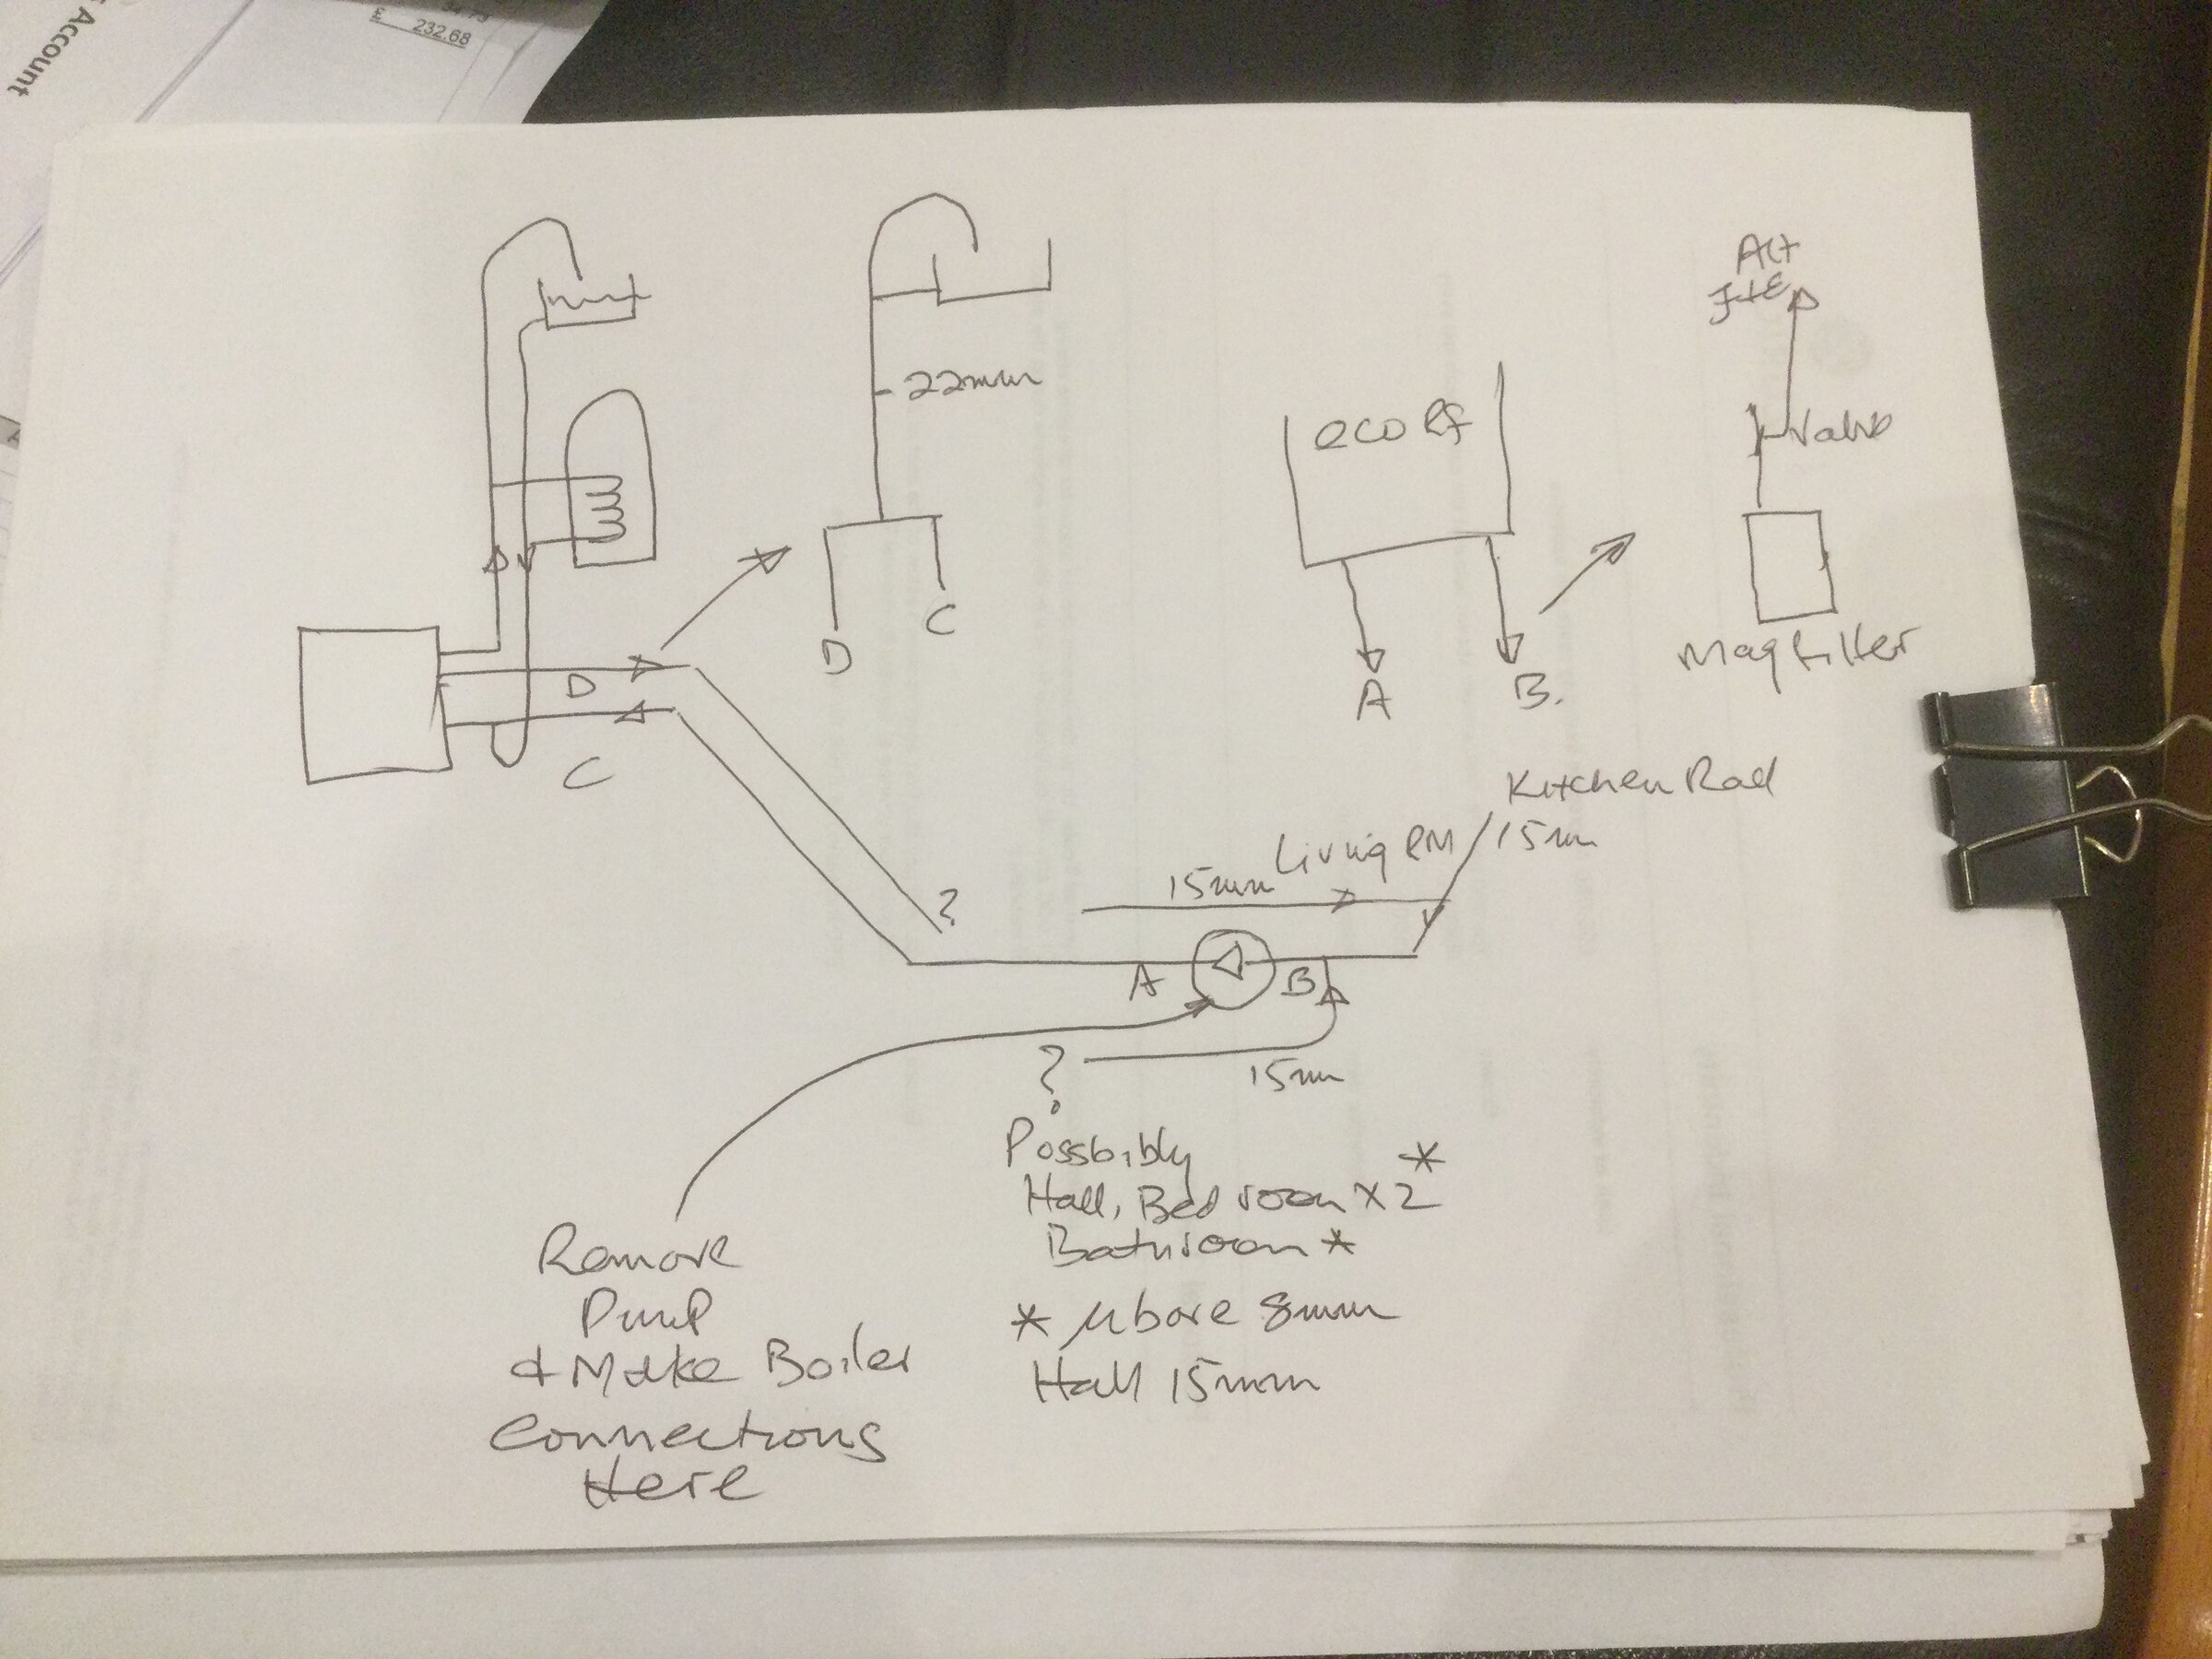 Account
£ 232.68
22mm
eco RF
Alt
Valve
Mag filter
D
C
A
B.
D
C
Kitchen Rad
15mm
Living RM
15mm
?
A
B
?
15mm
Possbibly
Hall, Bedroom x 2 *
Bathroom *
* µbore 8mm
Hall 15mm
Remove
Pump
& Make Boiler
Connections
Here